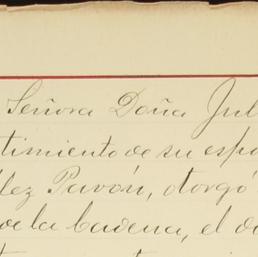 Señora Doña Jul
timiento de su espo
lez Pavón, otorgó
de la Cadena, el d